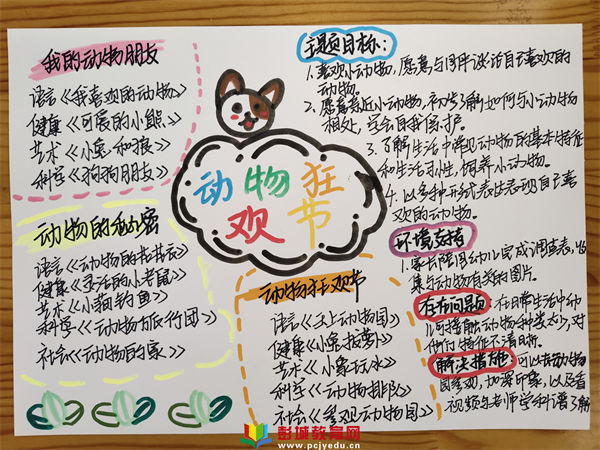 我的动物朋友
语言《我喜欢的动物》
健康《可爱的小熊》
艺术《小兔和狼》
科学《狗狗朋友》
动物的秘密
语言《动物的花花衣》
健康《灵活的小老鼠》
艺术《小猫钓鱼》
科学《动物旅行团》
社会《动物的家》
动物狂
欢节
动物狂欢节
语言《天上动物园》
健康《小兔拔萝卜》
艺术《小象玩水》
科学《动物排队》
社会《参观动物园》
主题目标：
1.喜欢小动物，愿意与同伴谈话自己喜欢的
动物。
2.愿意亲近小动物，初步了解如何与小动物
相处，学会自我保护。
3.了解生活中常见动物的基本特征
和生活习性，饲养小动物。
4.以多种形式表达表现自己喜
欢的动物。
环境支持
1.家长陪同幼儿完成调查表，收
集与动物有关的图片。
存在问题：在日常生活中幼
儿可接触动物种类太少，对
他们特征不清晰。
解决措施：可以去动物
园参观，加深印象，以及看
视频与老师学科谱了解
彭城教育网
www.pcjyedu.cn